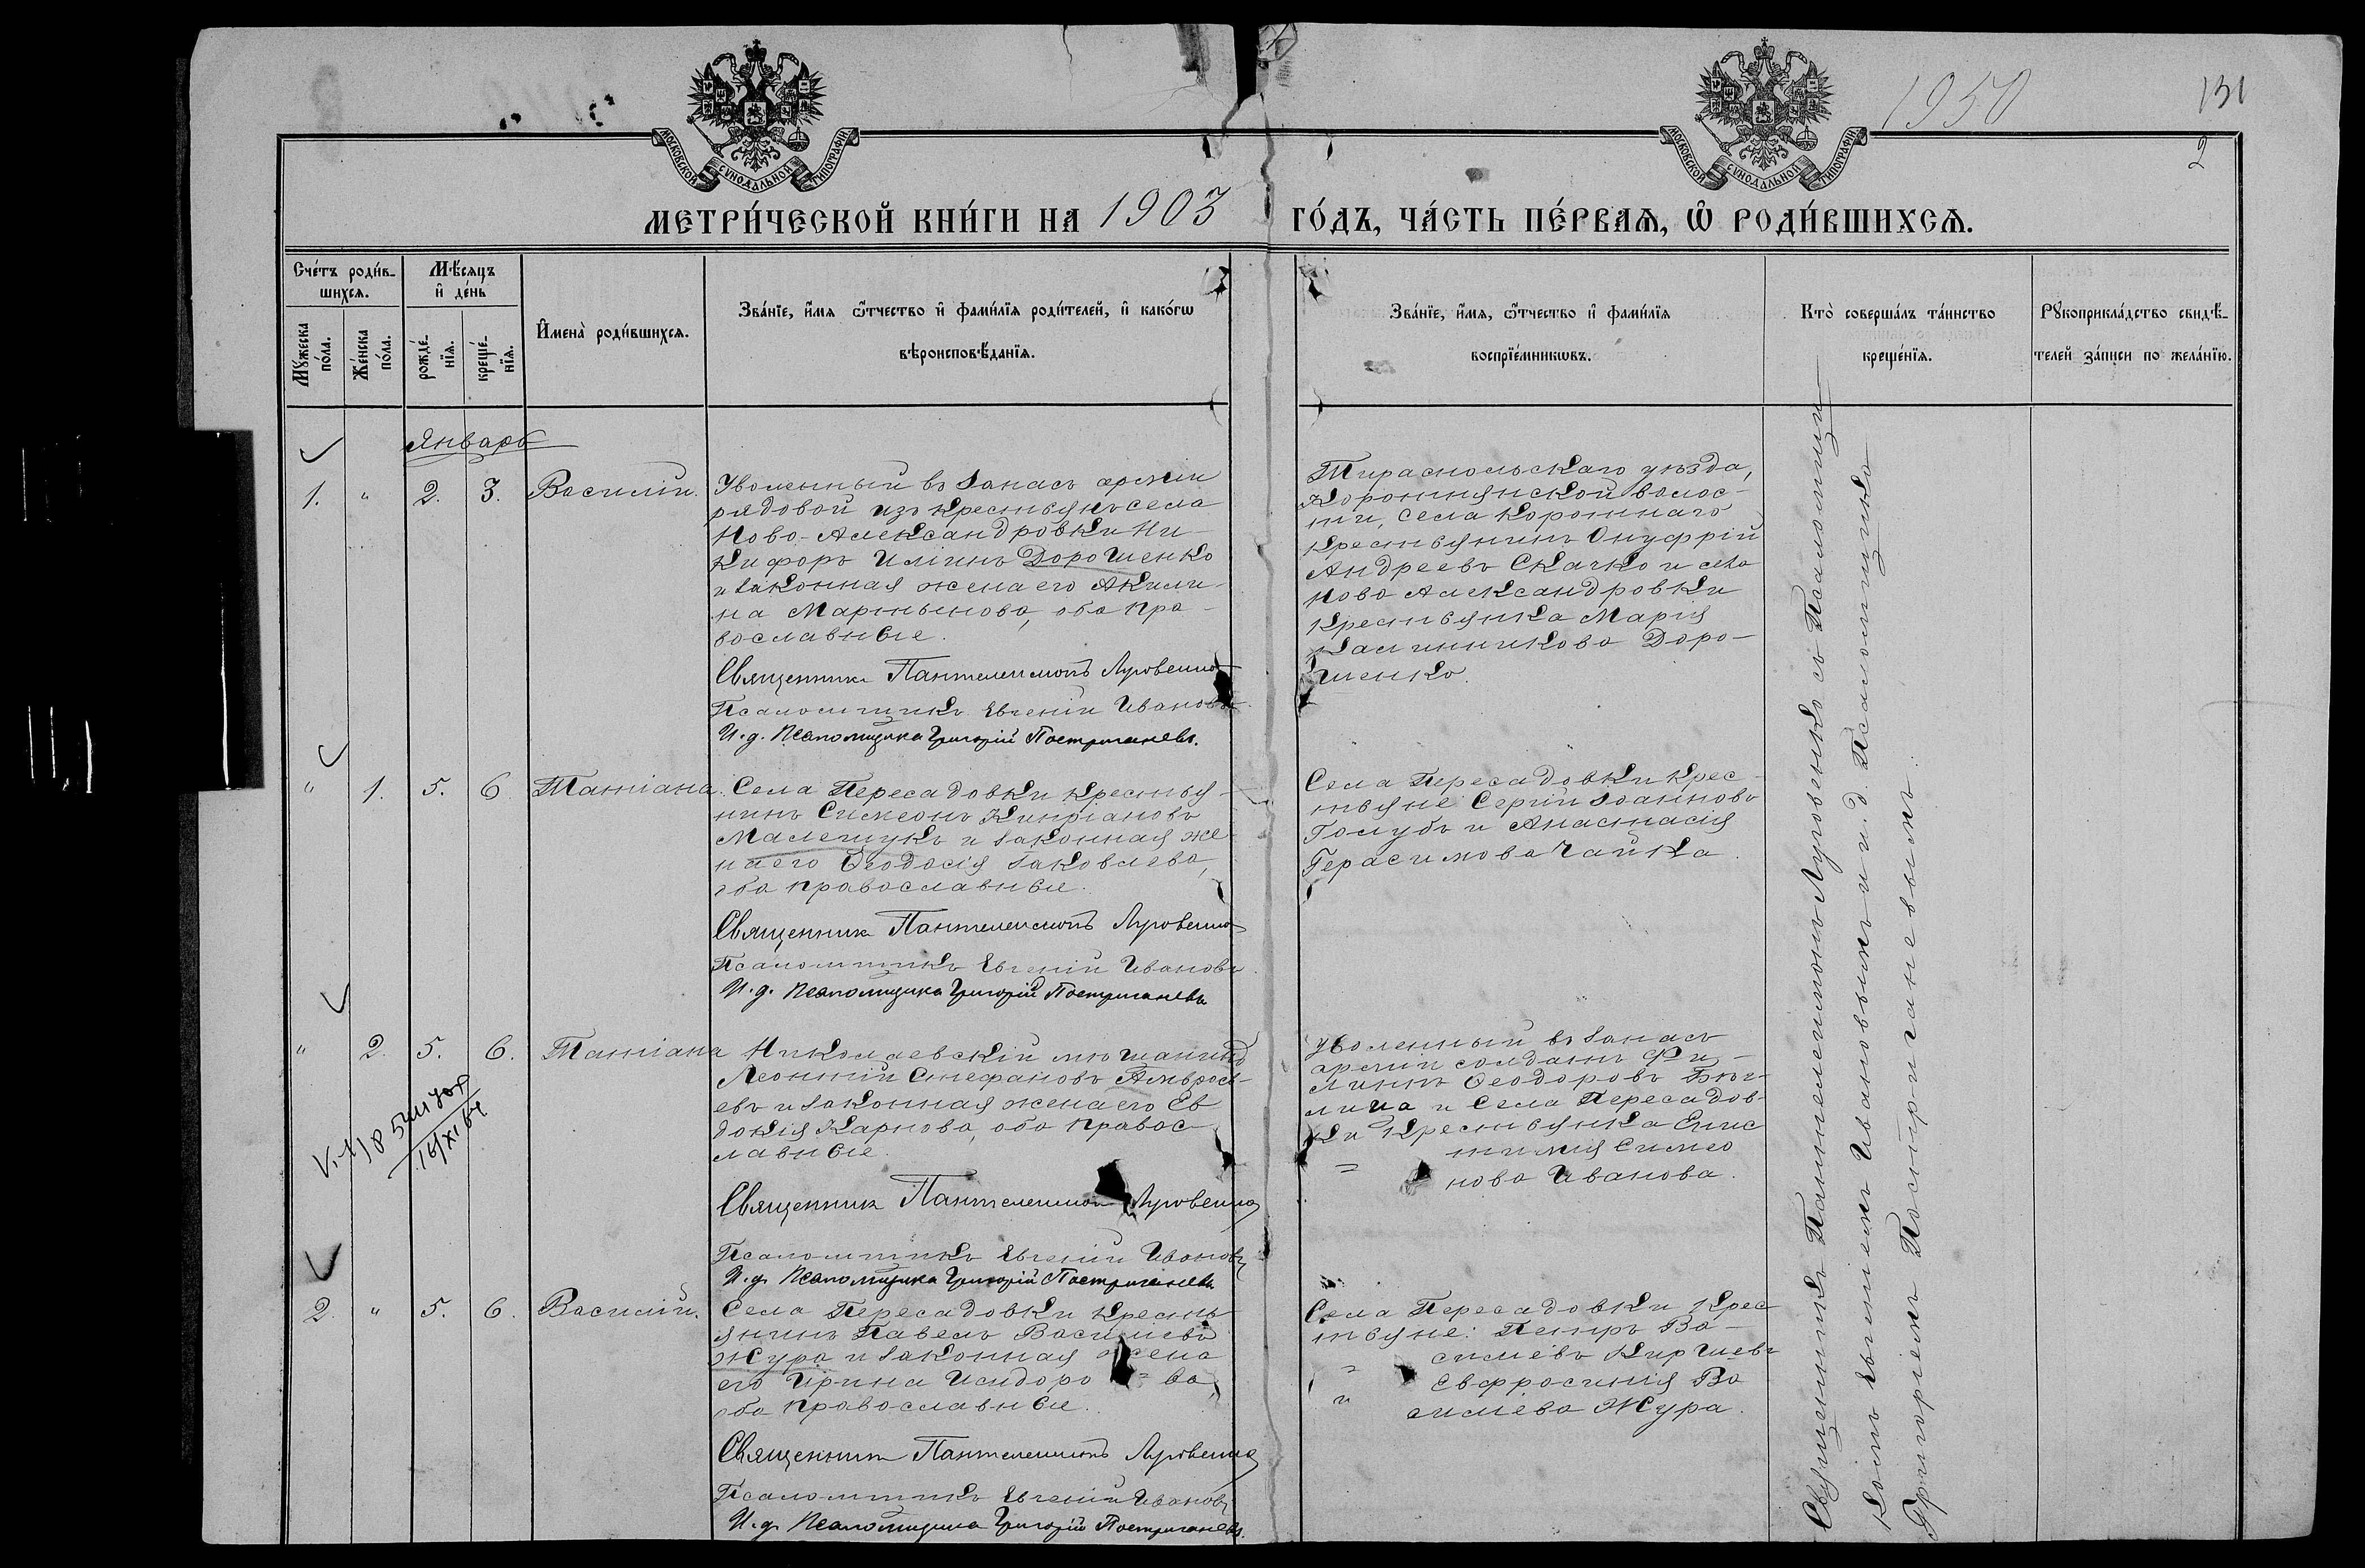 1950
131
2
МОСКОВСКОЙ СѴНОДАЛЬНОЙ ТИПОГРАФІИ
МОСКОВСКОЙ СѴНОДАЛЬНОЙ ТИПОГРАФІИ
МЕТРИ́ЧЕСКОЙ КНИ́ГИ НА 1903 ГО́ДЪ, ЧА́СТЬ ПЕ́РВАѦ, Ѽ РОДИ́ВШИХСѦ.
Сче́тъ роди́в-
шихсѧ.
Мꙋ́жеска
по́ла.
Же́нска
по́ла.
Мѣ́сѧцъ
и҆ де́нь
рожде́-
нїѧ.
креще́-
нїѧ.
И҆мена̀ роди́вшихсѧ.
Зва́нїе, и҆́мѧ ѻ҆́тчество и҆ фами́лїѧ роди́телей, и҆ како́гѡ
вѣроисповѣ́данїѧ.
Зва́нїе, и҆́мѧ, ѻ҆́тчество и҆ фами́лїѧ
воспрїе́мникѡвъ.
Кто̀ соверша́лъ та́инство
креще́нїѧ.
Рꙋкоприкла́дство свидѣ́-
телей за́писи по жела́нїю.
Январь
1. " 2. 3. Василій.
Уволенный въ запасъ арміи
рядовой изъ крестьянъ села
Ново-Александровки Ни-
кифоръ Иліинъ Дорошенко
и законная жена его Акили-
на Мартынова, оба пра-
вославные.
Священникъ Пантелеимонъ Луговенко
Псаломщикъ Евгеній Ивановъ.
И. д. Псаломщика Григорій Постригачевъ.
Тираспольскаго уѣзда,
Коротнянской волос-
ти, села Коротнаго
крестьянинъ Онуфрій
Андреевъ Скачко и села
Ново Александровки
крестьянка Марія
Каллиникова Доро-
шенко.
" 1. 5. 6. Татіана.
Села Пересадовки крестья-
нинъ Симеонъ Кипріановъ
Малещукъ и законная же-
на его Ѳеодосія Іаковлева,
оба православные.
Священникъ Пантелеимонъ Луговенко
Псаломщикъ Евгеній Ивановъ.
И. д. Псаломщика Григорій Постригачевъ
Села Пересадовки крес-
тьяне Сергій Іоанновъ
Голубъ и Анастасія
Герасимова Чайка.
" 2. 5. 6. Татіана
Николаевскій мѣщанинъ
Леонтій Стефановъ Амврось-
евъ и законная жена его Ев
докія Карпова, оба правос-
лавные.
Священникъ Пантелеимонъ Луговенко
Псаломщикъ Евгеній Ивановъ
И. д. Псаломщика Григорій Постригачевъ
Уволенный въ запасъ
арміи солдатъ Фи-
липпъ Ѳеодоровъ
и села Пересадов-
ки крестьянка Епис
тимія Симео
нова Иванова.
16/XI 64
2. " 5. 6. Василій.
Села Пересадовки кресть
янинъ Павелъ Василіевъ
Жура и законная жена
его Ирина Исидоро=ва,
оба православные.
Священникъ Пантелеимонъ Луговенко
Псаломщикъ Евгеній Ивановъ
И. д. Псаломщика Григорій Постригачевъ.
Села Пересадовки крес-
тьяне: Петръ Ва-
силіевъ Киршевъ
и Евфросинія Ва
силіева Жура.
Священникъ Пантелеимонъ Луговенко съ Псаломщи
комъ Евгеніемъ Ивановымъ и и. д. Псаломщика
Григоріемъ Постригачевымъ.